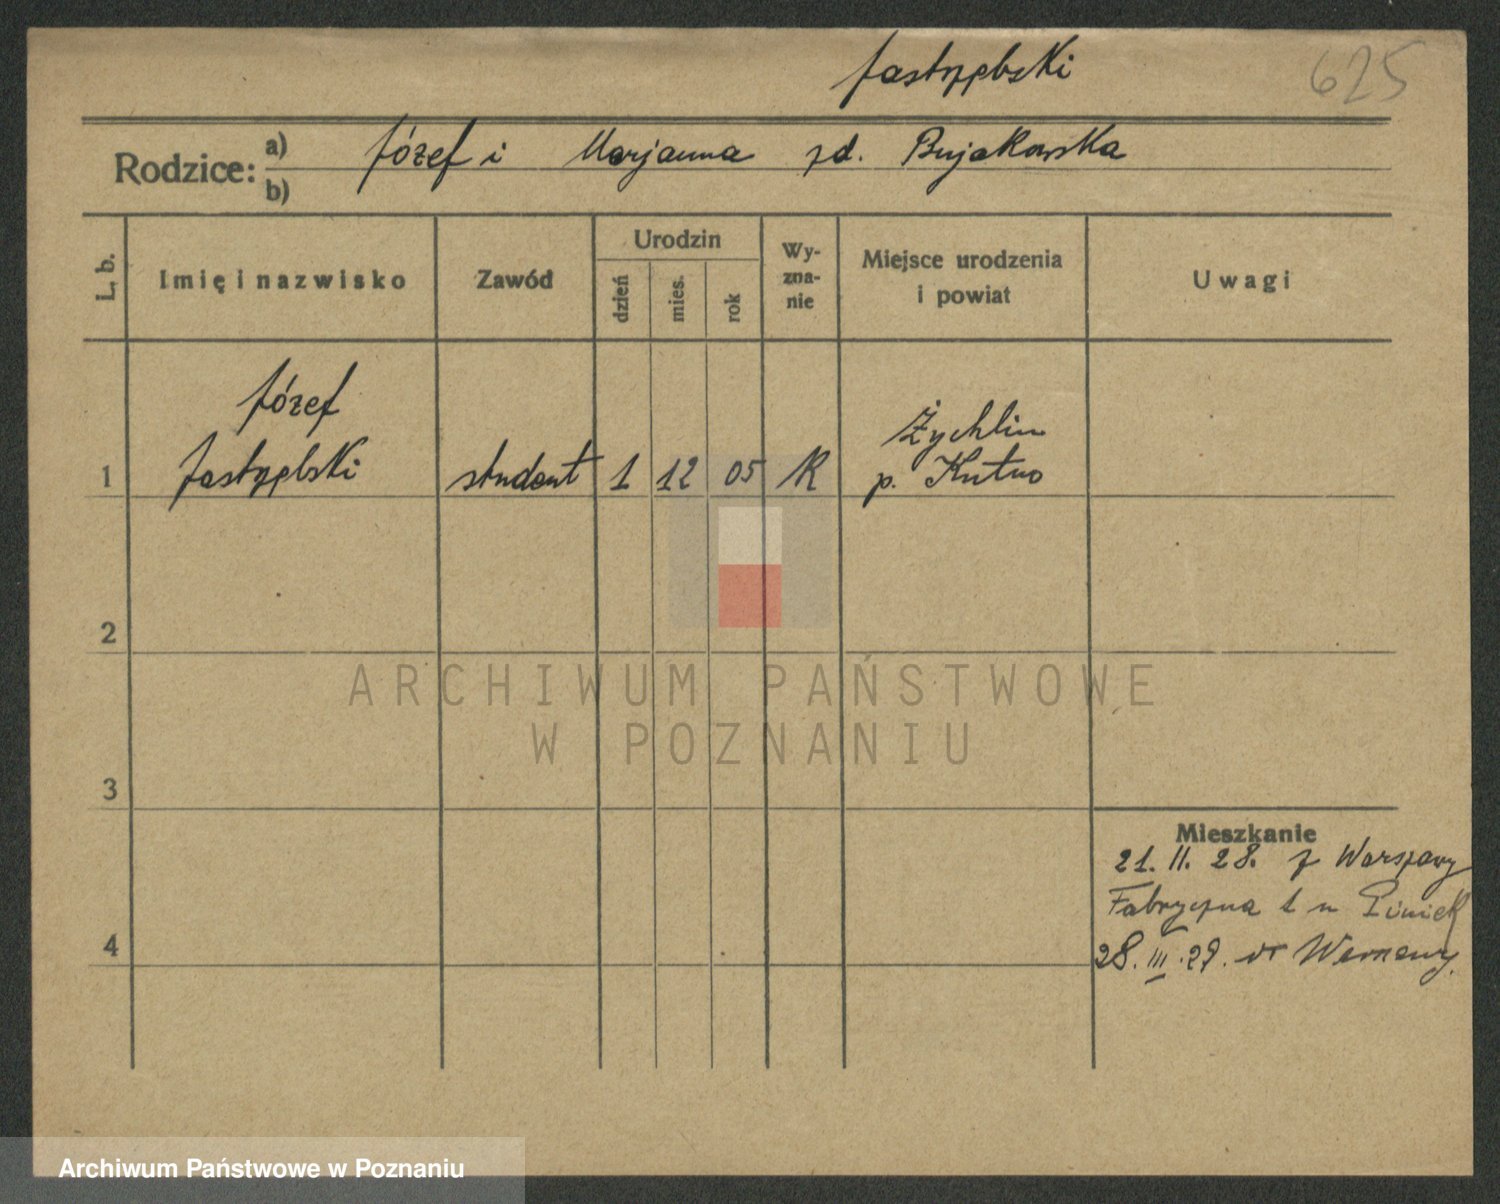 Jastrzębski 625
Rodzice: a) Józef i Marjanna zd. Bujakowska
b)
L. b. Imię i nazwisko Zawód Urodzin dzień mies. rok Wy-zna-nie Miejsce urodzenia i powiat Uwagi
Józef Żychlin
1 Jastrzębski student 1 12 05 K p. Kutno
2
ARCHIWUM PAŃSTWOWE
W POZNANIU
3
Mieszkanie
21. II. 28. z Warszawy
Fabryczna 1 u
4 28. III. 29.
Archiwum Państwowe w Poznaniu